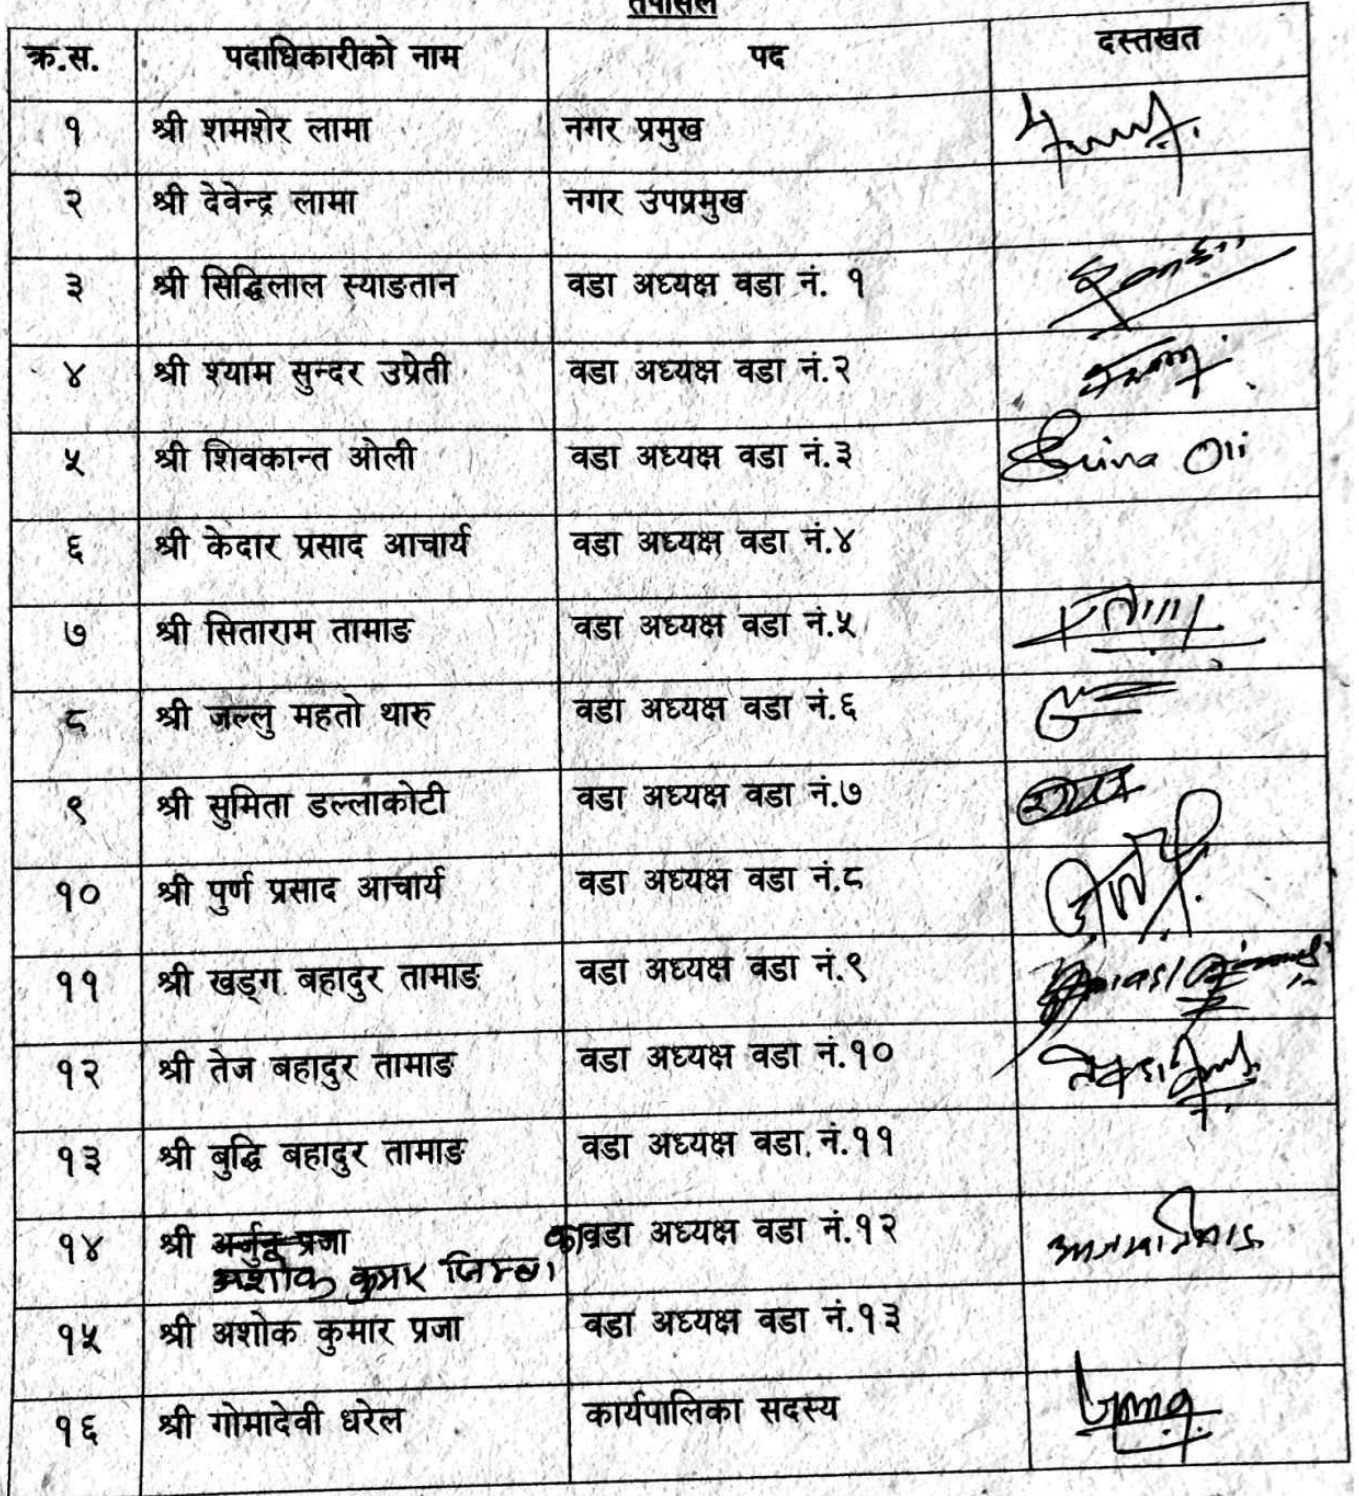 तपसिल
क्र.स. पदाधिकारीको नाम पद दस्तखत
१ श्री शमशेर लामा नगर प्रमुख
२ श्री देवेन्द्र लामा नगर उपप्रमुख
३ श्री सिद्धिलाल स्याङतान वडा अध्यक्ष वडा नं. १
४ श्री श्याम सुन्दर उप्रेती वडा अध्यक्ष वडा नं.२
५ श्री शिवकान्त ओली वडा अध्यक्ष वडा नं.३ Oli
६ श्री केदार प्रसाद आचार्य वडा अध्यक्ष वडा नं.४
७ श्री सिताराम तामाङ वडा अध्यक्ष वडा नं.५
८ श्री जल्लु महतो थारु वडा अध्यक्ष वडा नं.६
९ श्री सुमिता डल्लाकोटी वडा अध्यक्ष वडा नं.७
१० श्री पुर्ण प्रसाद आचार्य वडा अध्यक्ष वडा नं.८
११ श्री खड्ग बहादुर तामाङ वडा अध्यक्ष वडा नं.९
१२ श्री तेज बहादुर तामाङ वडा अध्यक्ष वडा नं.१०
१३ श्री बुद्धि बहादुर तामाङ वडा अध्यक्ष वडा नं.११
१४ श्री अर्जुन प्रजा का वडा अध्यक्ष वडा नं.१२
अशोक कुमार
१५ श्री अशोक कुमार प्रजा वडा अध्यक्ष वडा नं.१३
१६ श्री गोमादेवी धरेल कार्यपालिका सदस्य